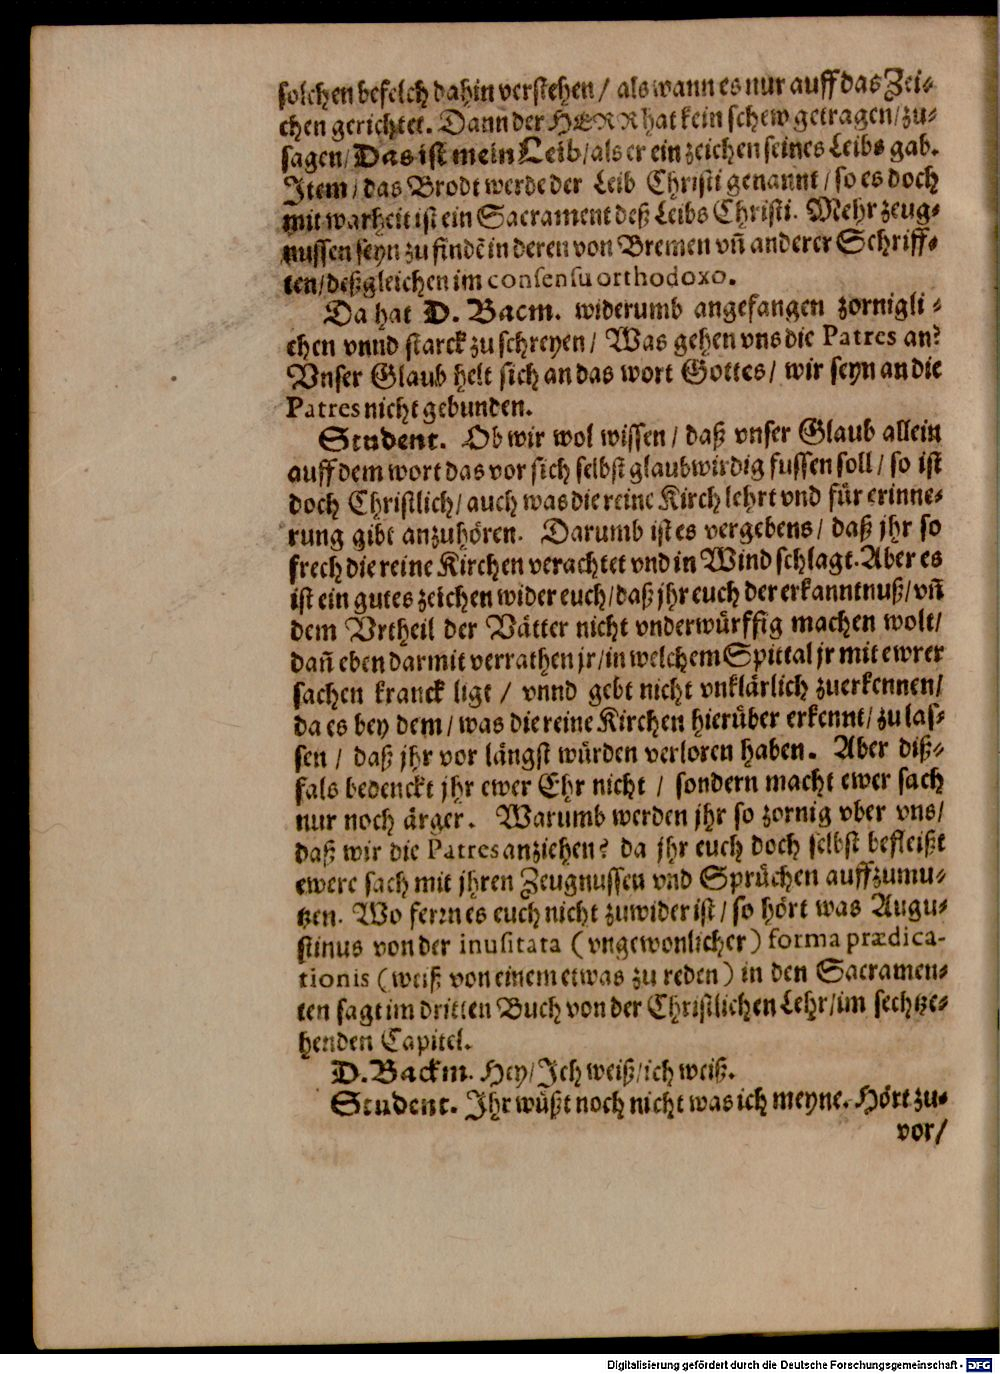 solchen befelch dahin verstehen / als wann es nur auff das Zei-
chen gerichtet. Dann der HERR hat kein schew getragen / zu-
sagen / Das ist mein Leib / als er ein zeichen seines Leibs gab.
Item / das Brodt werde der Leib Christi genannt / so es doch
mit warheit ist ein Sacrament deß Leibs Christi. Mehr zeug-
nussen seyn zu findẽ in deren von Bremen vñ anderer Schriff-
ten / deßgleichen im consensu orthodoxo.
Da hat D. Bacm. widerumb angefangen zornigli-
chen vnnd starck zu schreyen / Was gehen vns die Patres an?
Vnser Glaub helt sich an das wort Gottes / wir seyn an die
Patres nicht gebunden.
Student. Ob wir wol wissen / daß vnser Glaub allein
auff dem wort das vor sich selbst glaubwirdig fussen soll / so ist
doch Christlich / auch was die reine Kirch lehrt vnd für erinne-
rung gibt anzuhören. Darumb ist es vergebens / daß jhr so
frech die reine Kirchen verachtet vnd in Wind schlagt. Aber es
ist ein gutes zeichen wider euch / daß jhr euch der erkanntnuß / vñ
dem Vrtheil der Vätter nicht vnderwürffig machen wolt /
dañ eben darmit verrathen jr / in welchem Spittal jr mit ewrer
sachen kranck ligt / vnnd gebt nicht vnklärlich zuerkennen /
da es bey dem / was die reine Kirchen hierüber erkennt / zu las-
sen / daß jhr vor längst würden verloren haben. Aber diß-
fals bedenckt jhr ewer Ehr nicht / sondern macht ewer sach
nur noch ärger. Warumb werden jhr so zornig vber vns /
daß wir die Patres anziehen? da jhr euch doch selbst befleißt
ewere sach mit jhren Zeugnussen vnd Sprüchen auffzumu-
tzen. Wo ferrn es euch nicht zuwider ist / so hört was Augu-
stinus von der inusitata (vngewonlicher) forma prædica-
tionis (weiß von einem etwas zu reden) in den Sacramen-
ten sagt im dritten Buch von der Christlichen Lehr / im sechtze-
henden Capitel.
D. Backm. Hey / Ich weiß / ich weiß.
Student. Ihr wüßt noch nicht was ich meyne. Hört zu-
vor /
Digitalisierung gefördert durch die Deutsche Forschungsgemeinschaft - DFG